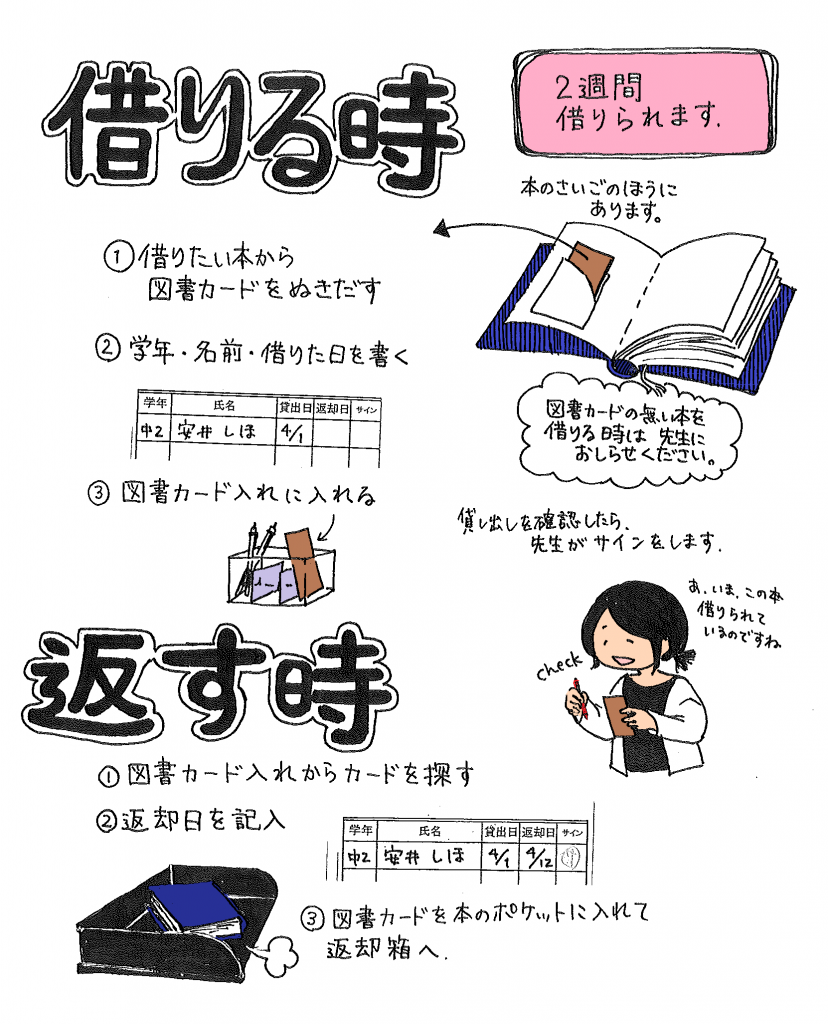 借りる時
2週間
借りられます.
本のさいごのほうに
あります。
①借りたい本から
図書カードをぬきだす
②学年・名前・借りた日を書く
学年 氏名 貸出日 返却日 サイン
中2 安井しほ 4/1
図書カードの無い本を
借りる時は先生に
おしらせください。
③図書カード入れに入れる
貸し出しを確認したら、
先生がサインをします.
あ、いま、この本
借りられて
いるのですね
check
返す時
①図書カード入れからカードを探す
②返却日を記入
学年 氏名 貸出日 返却日 サイン
中2 安井しほ 4/1 4/12
③図書カードを本のポケットに入れて
返却箱へ.